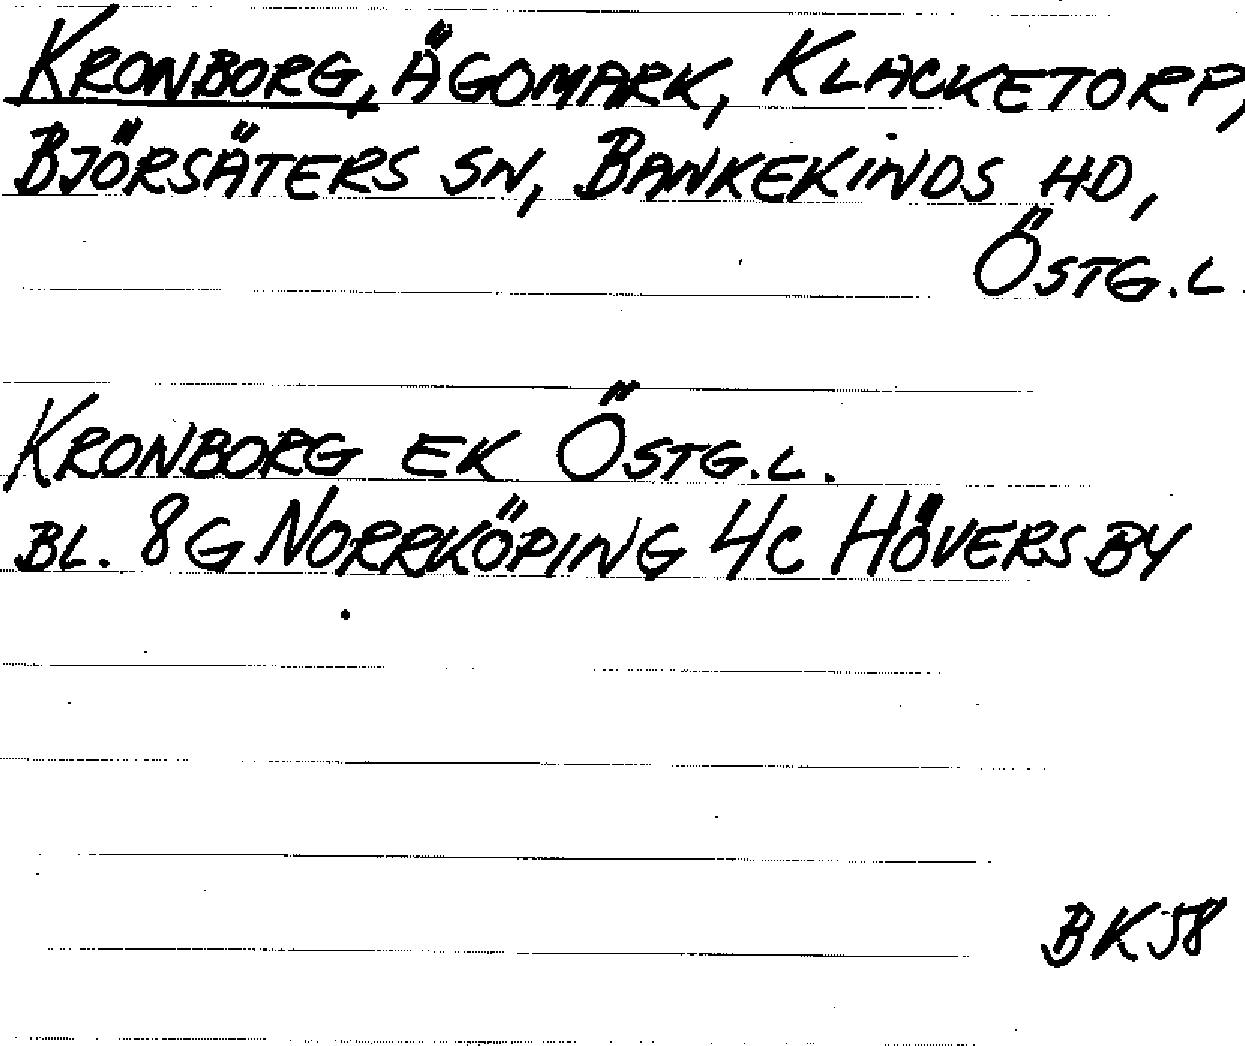 KRONBORG, ÄGOMARK, KLACKETORP,
BJÖRSÄTERS SN, BANKEKINDS HD,
ÖSTG.L.
KRONBORG EK ÖSTG.L.
BL. 8G NORRKÖPING 4C HÖVERSBY
BK58